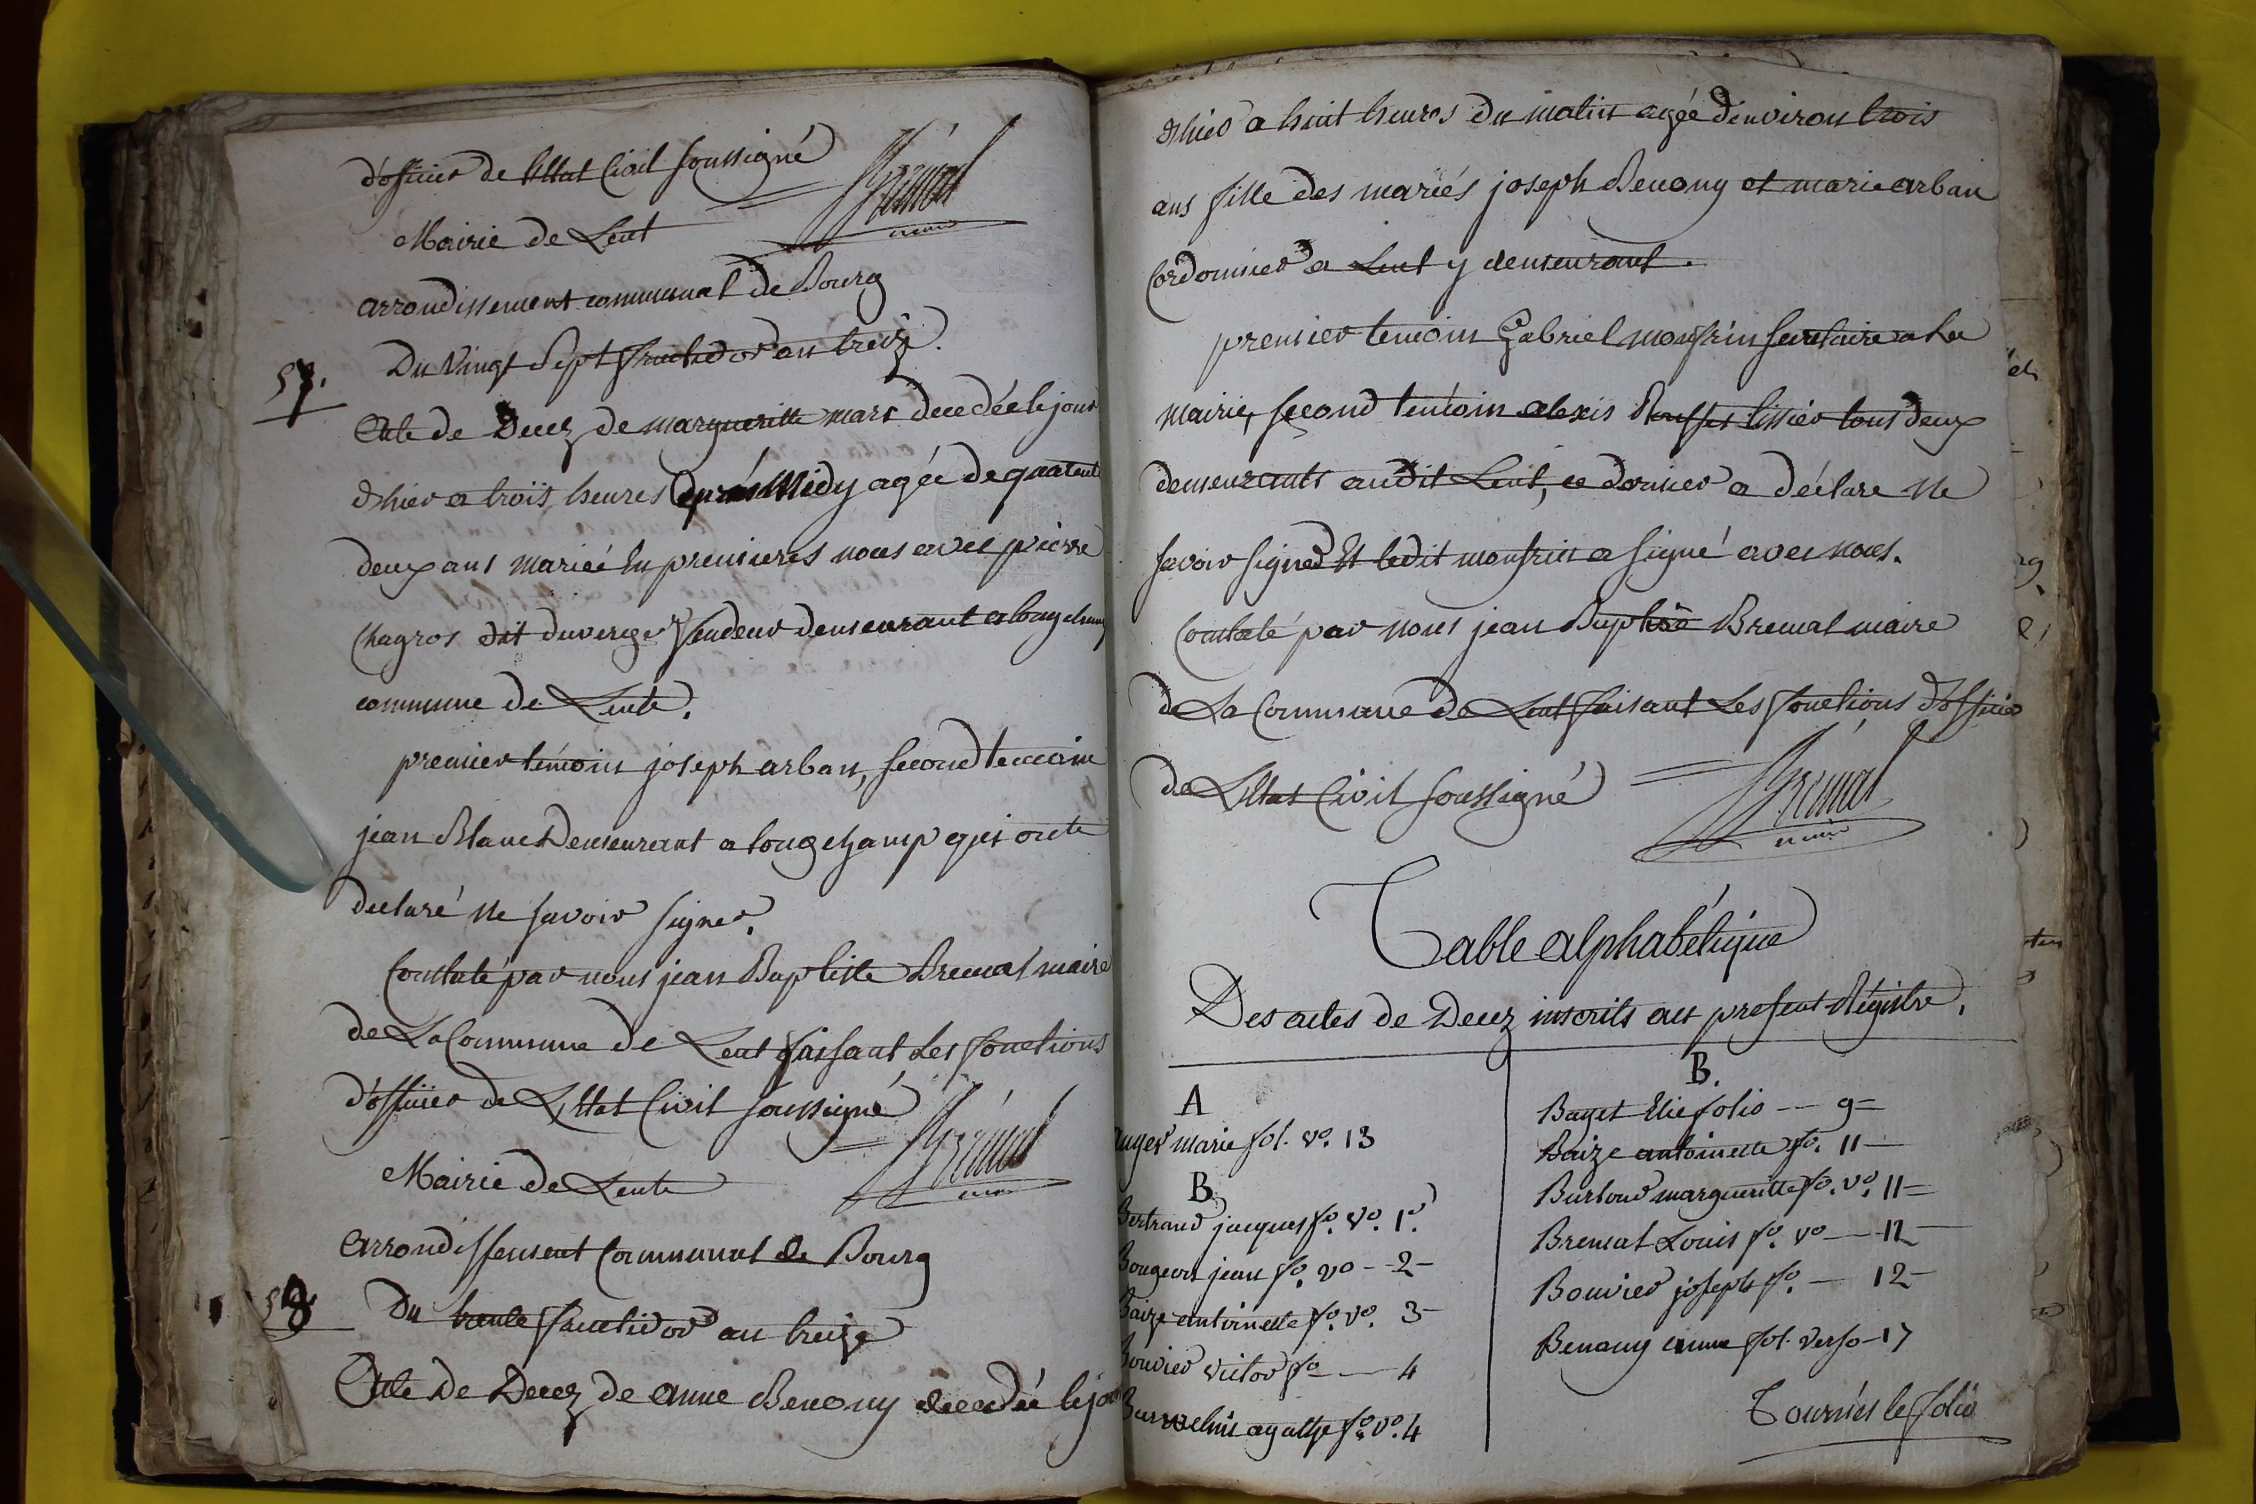 d'officier de L'Etat Civil soussigné
Bremal
maire
Mairie de Lent
arrondissement communal de Bourg
57.
Du Vingt Sept fructidor an treize.
Acte de Decez de margueritte mare decedée le jour
d'hier a trois heures après Midy agée de quarente
deux ans mariée En premieres noces avec pierre
Chagros dit duverger demeurant a longchamp
commune de Lente.
premier témoin joseph arban, second temoin
jean Blanc Demeurant a longchamp qui ont
declaré ne savoir signer.
Constaté par nous jean Baptiste Bremal maire
de La Commune de Lent faisant Les fonctions
d'officier de L'Etat Civil soussigné
Bremal
maire
Mairie de Lente
arrondissement Communal de Bourg
58
Du trente fructidor an treize
Acte de Decez de anne Benony decedée le jour
d'hier a huit heures du matin agée d'environ trois
ans fille des mariés joseph Benony et marie arban
Cordonnier a Lent y demeurant.
premier temoin Gabriel monfrin secretaire a La
mairie, second temoin alexis Rousset tissier tous deux
demeurants audit Lent, ce dernier a déclaré ne
savoir signer Et ledit monfrin a signé avec nous.
Constaté par nous jean Baptiste Bremal maire
de La Commune de Lent faisant Les fonctions d'officier
de L'Etat Civil soussigné
Bremal
maire
Table alphabétique
Des actes de Decez inscrits au present Régistre.
A
auger marie fol. vo. 13
B
Bertrand jacques fo. vo. 1o.
Bougeon jean fo. vo - - 2 -
Baize antoinette fo. vo. 3 -
Bouvier victor fo - - 4
agathe fo. vo. 4
B.
Bayet Elie folio - - 9 =
Baize antoinette fo. 11 -
Burtoud margueritte fo. vo. 11 =
Bremal Louis fo. vo - 12 -
Bouvier joseph fo. - 12 -
Benony anne fol. verso - 17
Tournés le folio